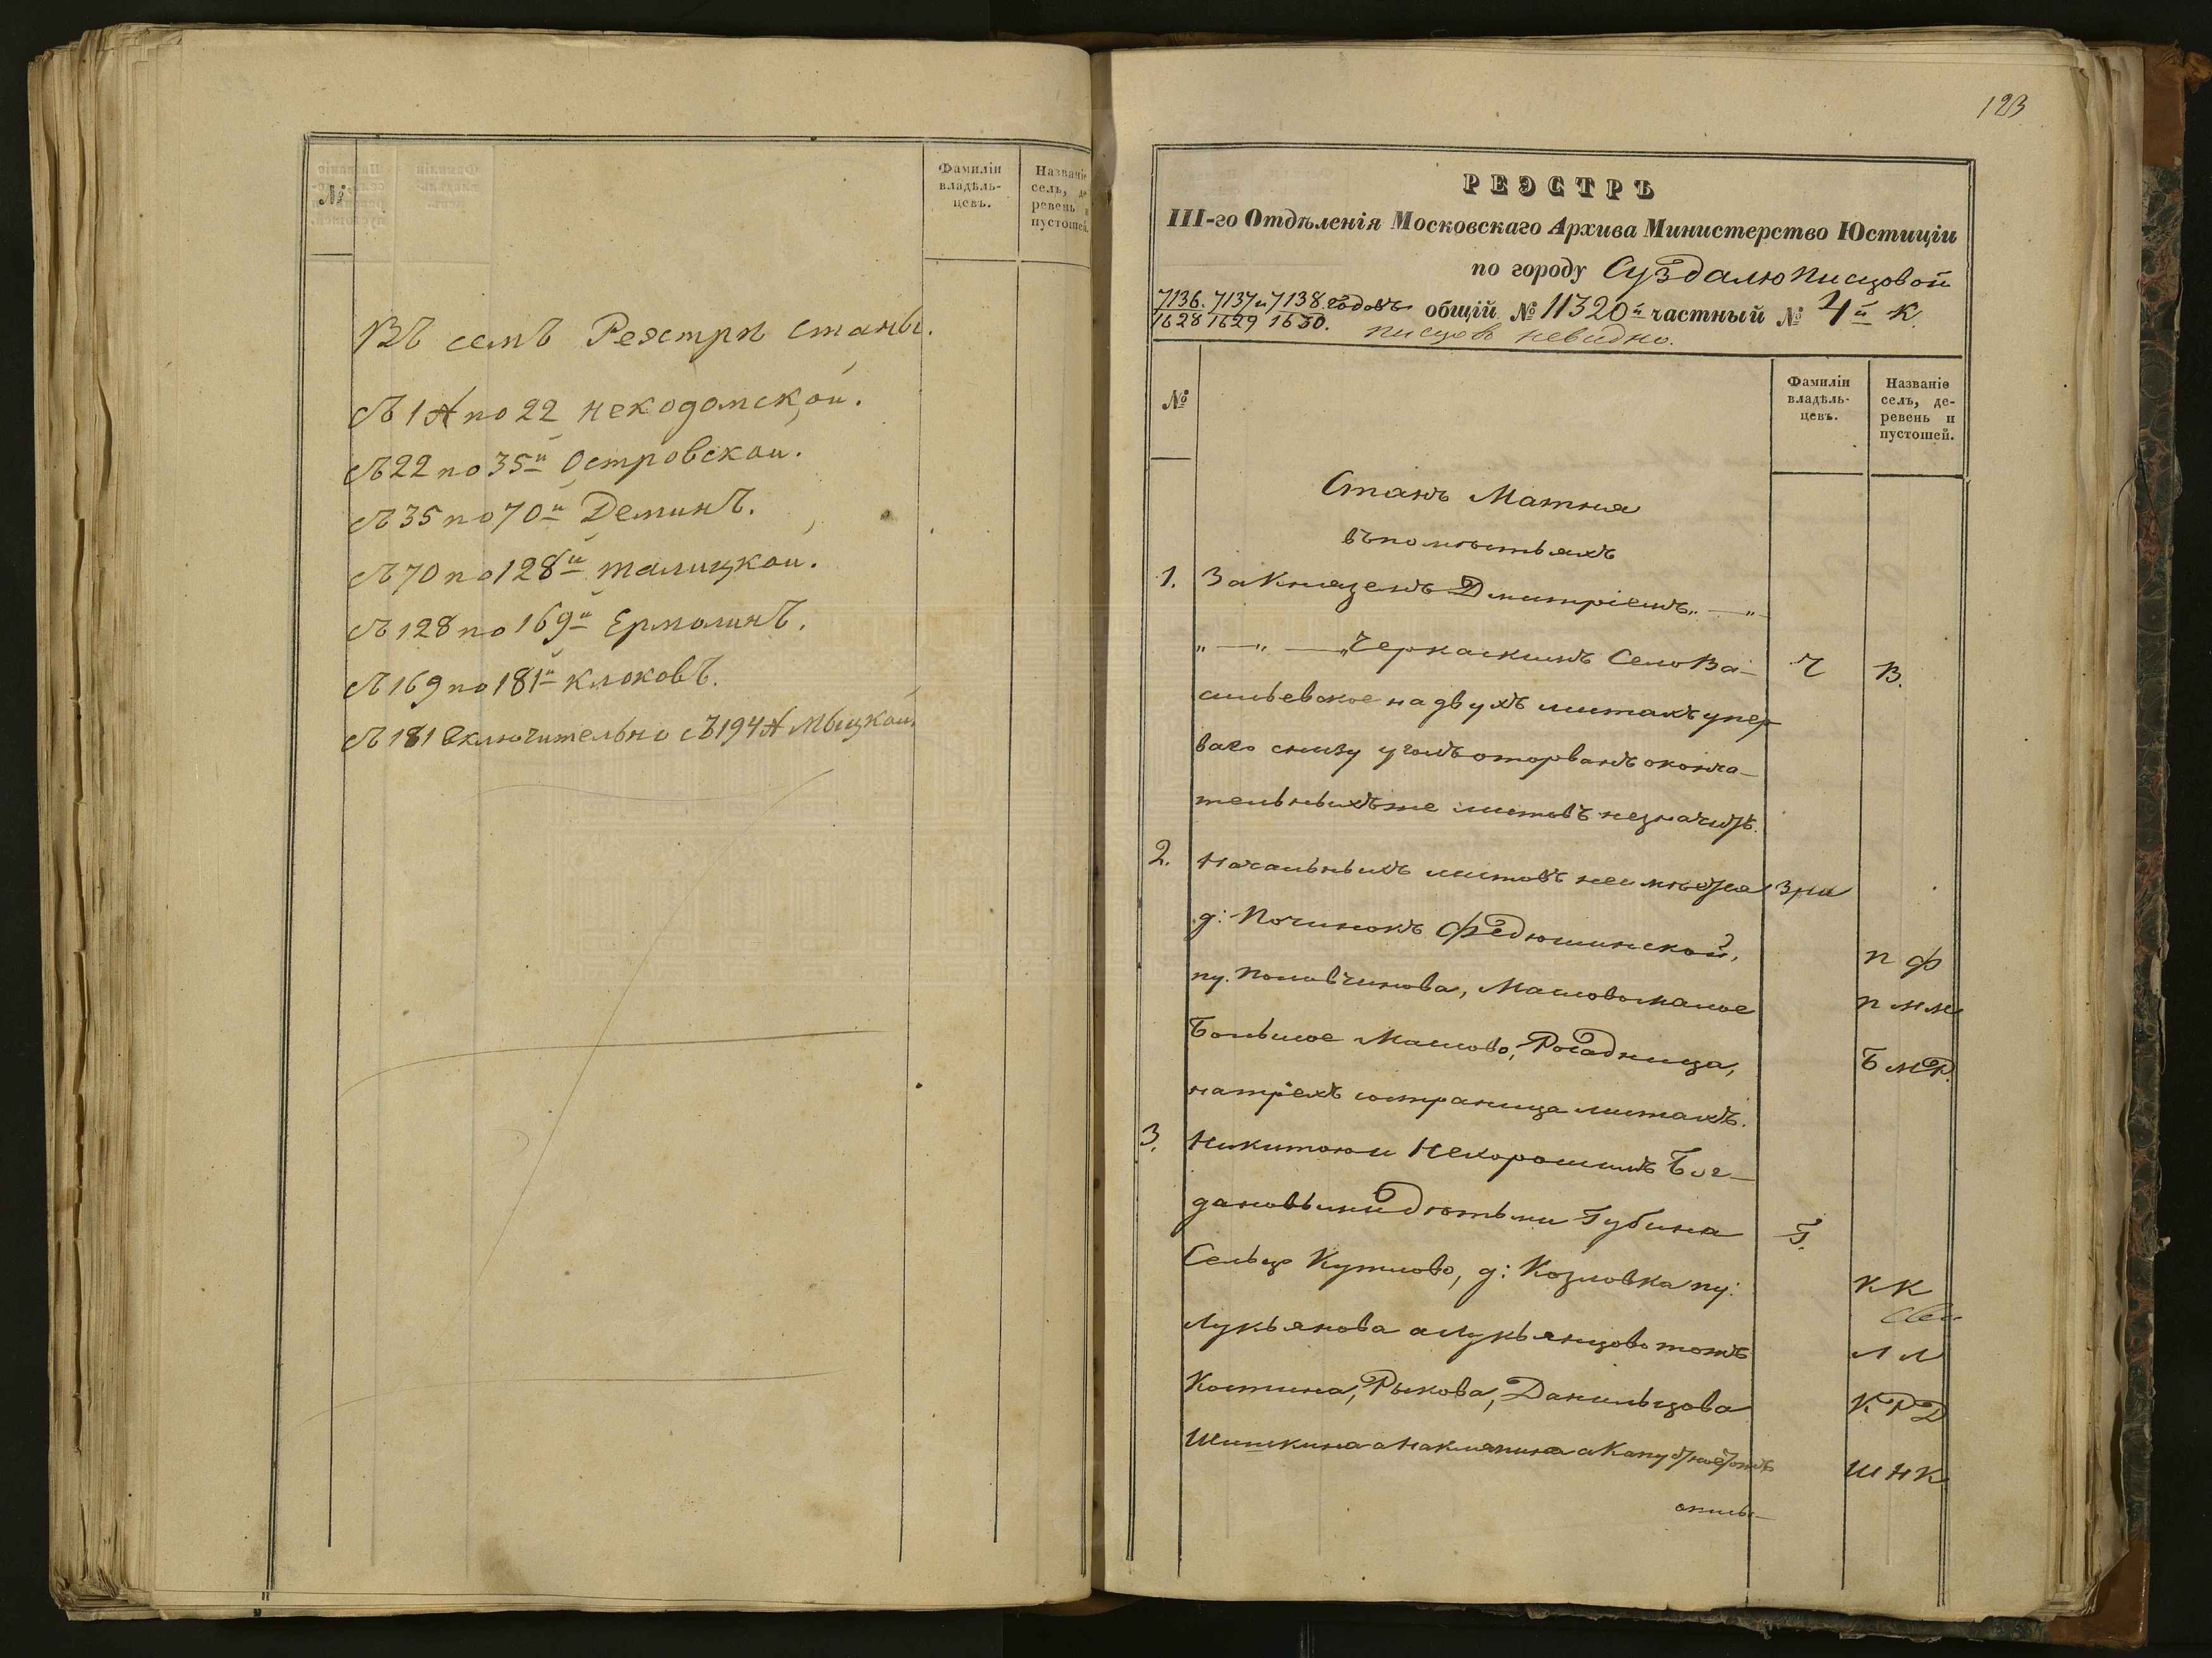 №
Фамиліи
владѣль-
цевъ.
Названіе
селъ, де
ревень и
пустошей.
Въ семъ Реэстрѣ станы.
Съ 1 № по 22 Некодомской.
Съ 22 по 35й Островской.
Съ 35 по 70й Деминъ.
Съ 70 по 128й талицкой.
Съ 128 по 169й Ермолинъ.
Съ 169 по 181й Клоковъ.
Съ 181 включительно съ 194 № Мыцкой.
123
РЕЭСТРЪ
III-го Отдѣленія Московскаго Архива Министерство Юстиціи
по городу Суздалю писцовой
7136. 7137 и 7138 годовъ общій № 11320й частный № 4й К.
1628 1629 1630. писцовъ невидно.
№
Фамиліи
владѣль-
цевъ.
Названіе
селъ, де-
ревень и
пустошей.
Станъ Матня
въ помѣстьяхъ
1. За Княземъ Дмитріемъ „ — „
„ — „ — „ Черкаскимъ Село Ва- Ч В.
сильевское на двухъ листахъ у пер
ваго снизу уголъ оторванъ оконча-
тельныхъ же листовъ незначитъ.
2. Начальныхъ листовъ неимѣется зри
д: Починокъ Федюшинской, П Ф
пу. Половчинова, Маслово малое П М М
Большое Маслово, Рогадница, Б М Р.
на трехъ листахъ.
3. Никитою и Нехорошимъ Бог-
дановыми дѣтьми Губина Г.
Сельцо Кутлово, д: Козловка пу: К К
Лукьянова а Лукьянцово тожъ Л Л
Костина, Рыкова, Данильцова К Р Д
Шишкина а Наклячина а тожъ Ш Н К.
описа-